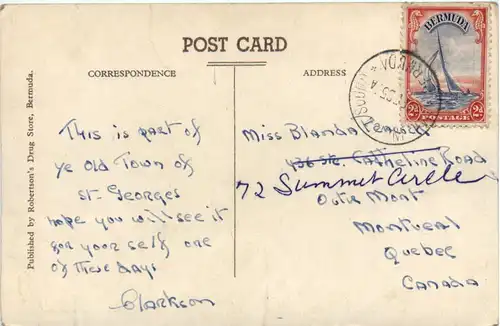 POST CARD
BERMUDA
2d 2d
POSTAGE
CORRESPONDENCE
ADDRESS
Published by Robertson's Drug Store, Bermuda.
This is part of
ye Old Town of
St-Georges
hope you will see it
for your self one
of these days
Clarkson
Miss Blanda
Ste. Catherine Road
72 Summit Circle
Outre Mont
Montreal
Quebec
Canada